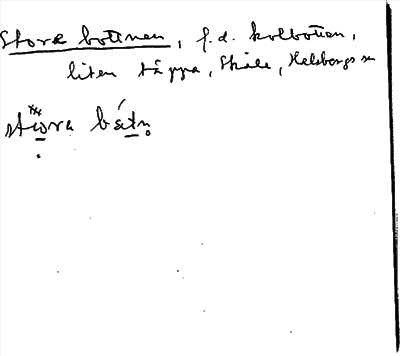 Stora bottnen, f.d. kolbotten,
liten täppa, Skåle, Helsbergs sn
stora båtn